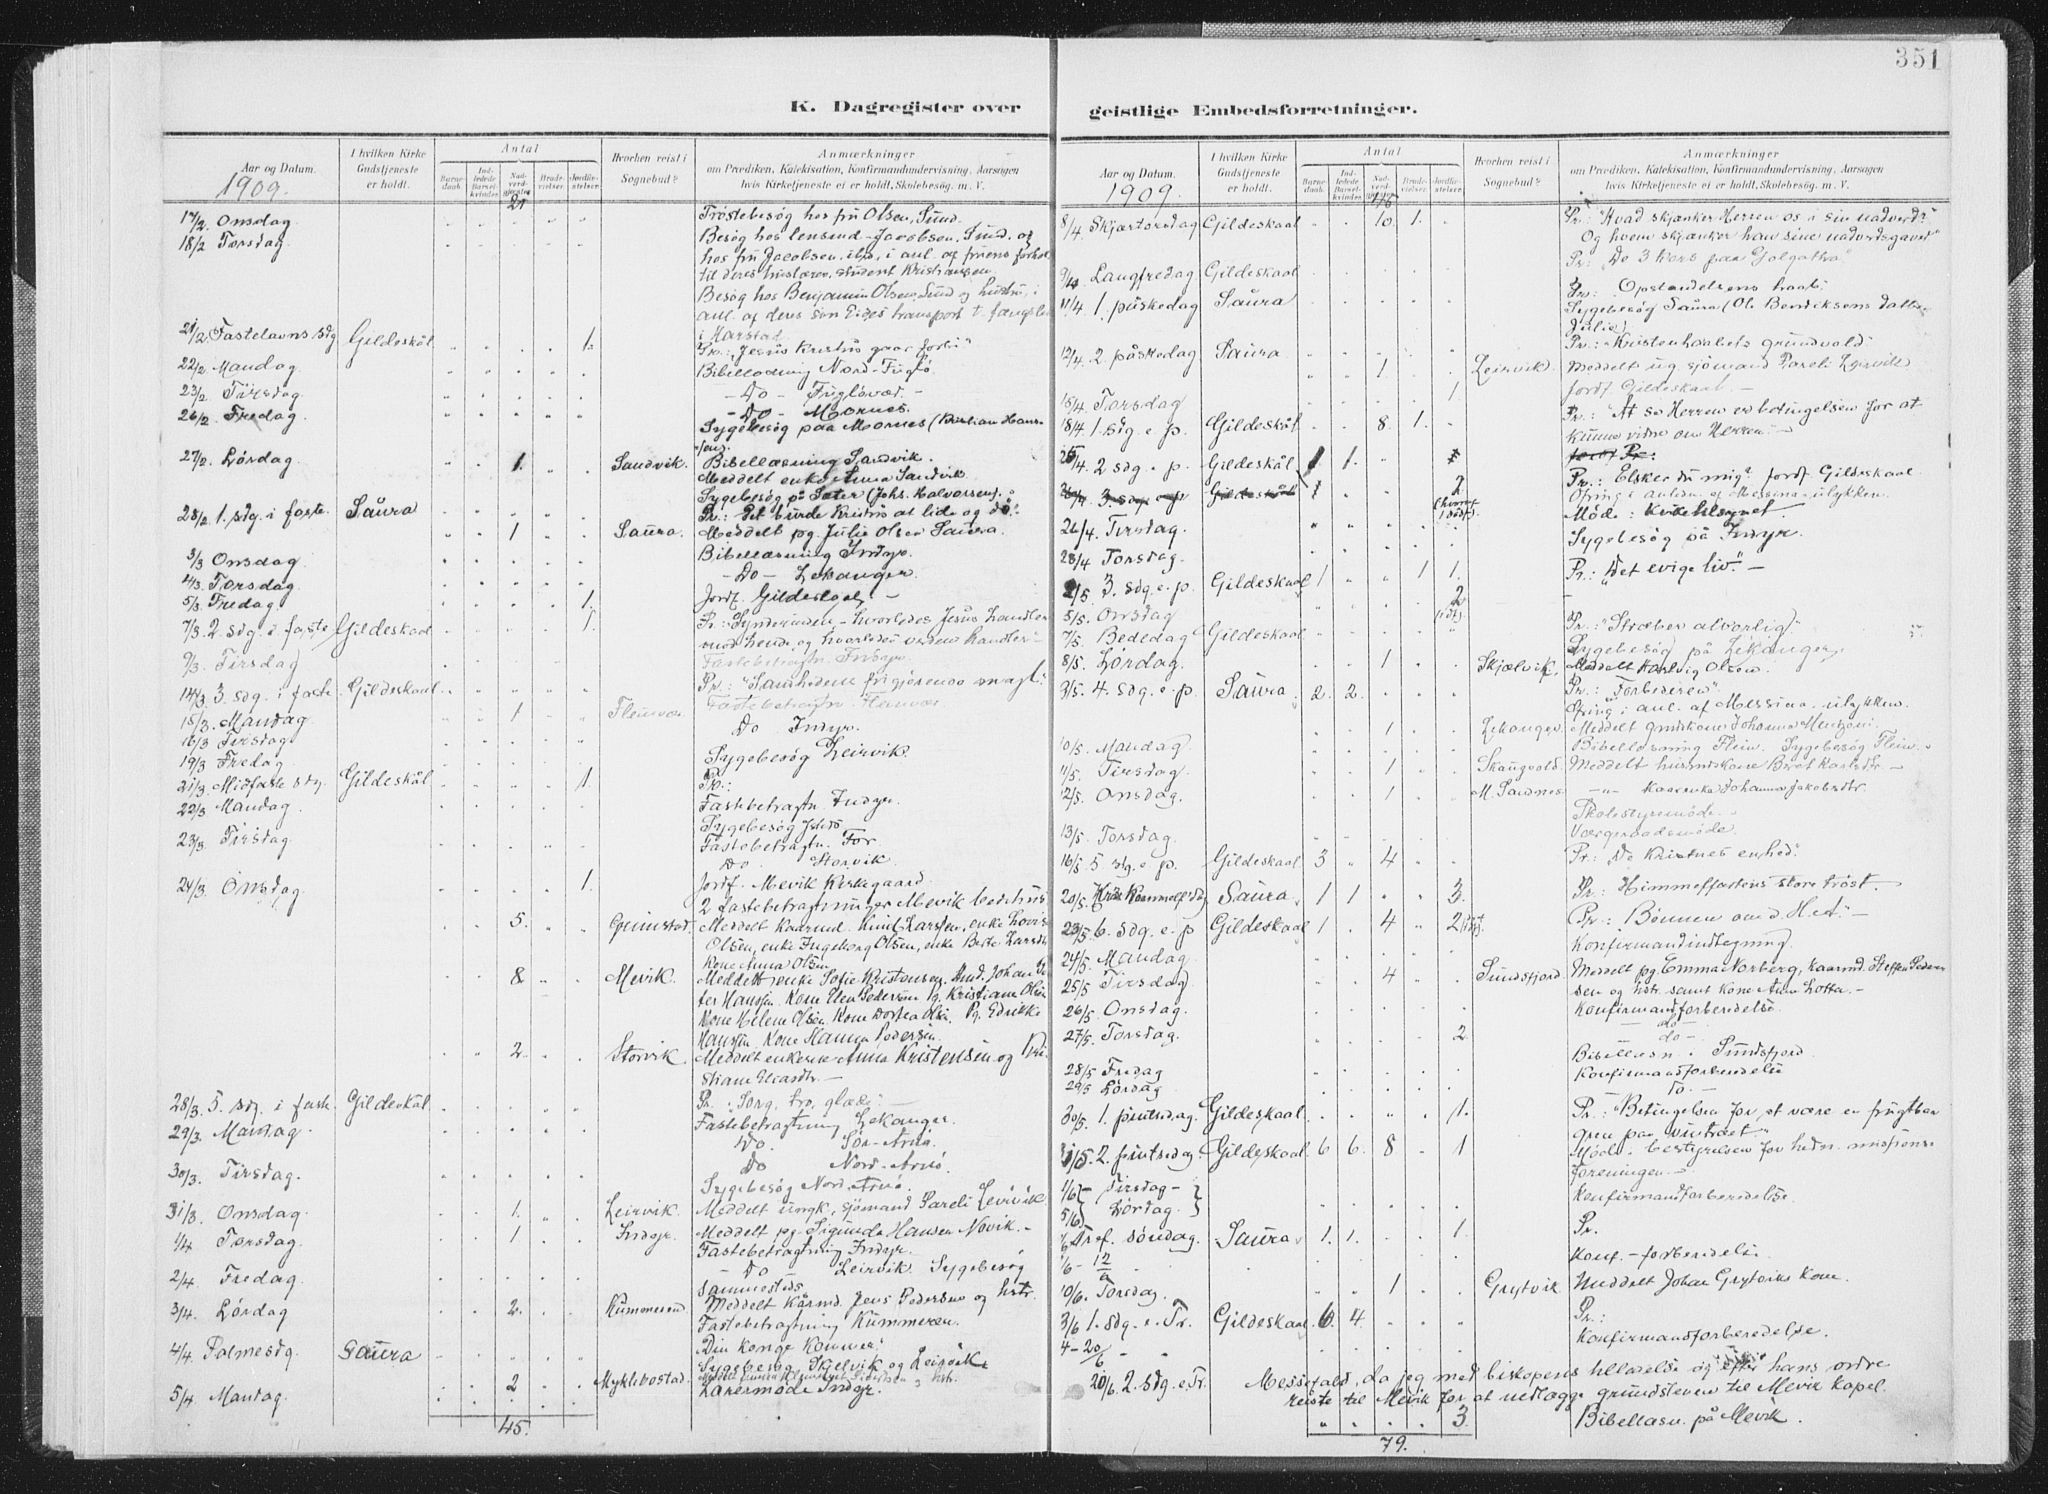 351
K. Dagregister over
Aar og Datum.
1909.
I hvilken Kirke Gudstjeneste er holdt.
Antal
Barnedaab.
Indledede Barselkvinder.
Nadverdgjester.
Brudevielser.
Jordfæstelser.
Hvorhen reist i Sognebud?
Anmærkninger
om Prædiken, Katekisation, Konfirmandundervisning, Aarsagen
hvis Kirketjeneste ei er holdt, Skolebesøg m. V.
17/2. Onsdag Trøstebesøg hos fru Olsen, Sund.
18/2 Torsdag Besøg hos lensmd. Jacobsen, Sund og
hos fru Jacobsen, ibid, i anl. af fruens forhol
til deres huslærer, student Kristiansen.
Besøg hos Benjamin Olsen, Sund og hustru, i
anl. af deres søn Eides transport t. fængslet
i Harstad.
21/2 Fastelavns sdg Gildeskål 1. Pr.: "Jesus Kristus gaar forbi"
22/2 Mandag Bibellæsning Nord-Fuglø
23/2. Tirsdag - Do - Fugløvær. -
26/2. Fredag - Do - Moornes.
Sygebesøg paa Moornes (Kristian Hans-
sen).
27/2. Lørdag 1. Sandvik. Bibellæsning Sandvik.
Meddelt enke Anna Sandvik
Sygebesøg på Sæter (Johs. Halvorsen).
28/2 1. sdg. i faste. Saura Pr.: Det burde Kristus at lide og dø.
1 Saura. Meddelt pg. Julie Olsen Saura.
3/3 Onsdag Bibellæsning Indyr.
4/3. Torsdag - Do - Lekanger.
5/3. Fredag. 1. Jordf. Gildeskaal -
7/3. 2. sdg. i faste Gildeskaal 1. Pr.: Synderinden - hvorledes Jesus handler
mod hende, og hvorledes verden handler"
9/3. Tirsdag Fastebetragtn. Indyr.
14/3. 3. sdg. i faste Gildeskaal Pr.: "Sandhedens frigjørende magt."
15/3. Mandag 1 Fleinvær Fastebetragtn. Fleinvær
16/3 Tirsdag Do Indyr.
19/3 Fredag Sygebesøg Leirvik.
21/3. Midfaste sdg. Gildeskål 1. Pr.:
22/3 Mandag Fastebetragtn. Indyr.
Sygebesøg
23/3. Tirsdag Fastebetragtn. For
Do. Storvik.
24/3. Onsdag 1. Jordf. Mevik Kirkegaard.
2 fastebetragtninger Mevik bedehus
5. Grimstad. Meddelt kaarmd. Knut Larssen, enke Lovise
Olsen, enke Ingeborg Olsen, enke Berte Larsdtr
kone Anna Olsen
8. Mevik. Meddelt enke Sofie Kristensen, Smd. Johan Pe
ter Hanssen. Kone Elen Pedersen pg. Kristiane Olsen
Kone Helene Olsen. Kone Dorfea Olsen. Pg. Edrikke
Hanssen, Kone Hanna Pedersen.
2. Storvik. Meddelt enkerne Anna Kristensen og Kri
stiane Eliasdtr. -
28/3. 5. sdg. i faste Gildeskål Pr. "Sorg, tro, glæde" -
29/3. Mandag Fastebetragtning Lekanger.
Do. Sør-Arnø.
30/3. Tirsdag. Do Nord-Arnø
Sygebesøg Nord-Arnø.
31/3. Onsdag 1. Leirvik. Meddelt ungk. sjømand Pareli Leirvik
1/4 Torsdag. 1. Indyr. Meddelt pg. Sigunda Hansen Novik. -
Fastebetragtning Indyr.
2/4 Fredag. - Do Leirvik. Sygebesøg
sammesteds.
3/4. Lørdag 2. Kummeren. Meddelt kårmd. Jens Pedersen og hstr.
Fastebetragtning Kummeren.
4/4. Palmesdg. Saura "Din konge kommer"
Sygebesøg Skjelvik og Leirvik
5/4 Mandag. 2 Myklebostad.
Lærermøde Indyr.
45.
geistlige Embedsforretninger.
Aar og Datum.
1909.
I hvilken Kirke Gudstjeneste er holdt.
Antal
Barnedaab.
Indledede Barselkvinder.
Nadverdgjester.
Brudevielser.
Jordfæstelser.
Hvorhen reist i Sognebud?
Anmærkninger
om Prædiken, Katekisation, Konfirmandundervisning, Aarsagen
hvis Kirketjeneste ei er holdt, Skolebesøg, m. V.
8/4. Skjærtorsdag Gildeskaal 10. 1. Pr.: "Hvad skjænker Herren os i sin nadverd?
Og hvem skjænker han sine nadverdsgaver"
9/4. Langfredag Gildeskaal Pr: "De 3 kors paa Golgatha"
11/4 1. påskedag Saura Pr: Opstandelsens haab.
Sygebesøg Saura (Ol. Bendiksens datter
Julie)
12/4. 2. påskedag Saura Pr.: "Kristenhaabets grundvold"
1 Leirvik. Meddelt ug. sjømand Pareli Leirvik
15/4. Torsdag 1. Jordf. Gildeskaal. -
18/4 1. sdg. e. p. Gildeskål 8. 1. Pr.: "At se Herren er betingelsen for at
kunne vidne om Herren" -
25/4. 2 sdg. e. p. Gildeskål 1. 1. Pr.: Elsker du mig? Jordf. Gildeskaal
2 Ofring i anledn. af Messina-ulykken.
26/4. Tirsdag. Møde: Kredsstyret.
28/4 Torsdag. Sygebesøg på Indyr.
2/5. 3. sdg. e. p. Gildeskaal 1 1 1. Pr.: "Det evige liv". -
5/5. Onsdag 2 -
7/5. Bededag Gildeskaal Pr.: "Stræber alvorlig"
8/5. Lørdag. 1 Skjælvik. Sygebesøg på Lekanger.
Meddelt Hartvig Olsen.
4. sdg. e. p. Saura 2. 2. Pr.: "Forbederen"
Ofring i anl. af Messina-ulykken.
10/5. Mandag. 1 Lekanger Meddelt Johanna Mentzoni.
Bibellæsning Flein. Sygebesøg Flein.
11/5. Tirsdag. 1 Skaugvold. Meddelt husmdskone Berit -
12/5. Onsdag. 1 M. Sandnes - " - kaarenke Johanna Jakobsdtr.
Skolestyremøde.
13/5. Torsdag. Værgeraadsmøde.
16/5. 5 sdg. e. p. Gildeskaal 3 4 Pr.: "De kristnes enhed."
20/5. Kr. Himmelf.dg Saura 1 1 3. Pr.: Himmelfartens store trøst. -
23/5. 6. sdg. e. p Gildeskaal 1. 4 2 Pr.: "Bønnen om d. H. A." -
24/5. Mandag. Konfirmandindtegning.
25/5. Tirsdag 4 Sundsfjord. Meddelt pg. Emma Norberg, kaarmd. Steffen Peder
sen og hstr. samt kone Anne Lotta. -
26/5. Onsdag. Konfirmandforberedelse.
27/5. Torsdag. 2. - do -
- do -
Bibellæsn. i Sundsfjord
28/5 Fredag Konfirmandforberedelse
29/5 Lørdag Do. -
30/5. 1. pintsedag. Gildeskaal. 1. Pr.: "Betingelsen for at være en frugtbar
gren paa vintræet"
31/5. 2. pintsedag Gildeskaal 6 6. 8 1 Møde i bestyrelsen for hedn. missions-
foreningen. -
1/6 - Tirsdag - Konfirmandforberedelse.
5/6 Lørdag.
Tref. søndag. Saura. 1. 1. 1. Pr.
Konf. - forberedelse
10/6. Torsdag. 1 Grytvik Meddelt Johan Grytviks kone.
1. sdg. e. Tr. Gildeskaal 6. 4. Pr.:
Konfirmandforberedelse.
20/6. 2. sdg. e. Tr. Messefald, da jeg med biskopens tilladelse og efter hans ordre
reiste til Mevik for at nedlægge grundstenen til Mevik kapel.
3. Bibellæsn. på Mevik.
79.